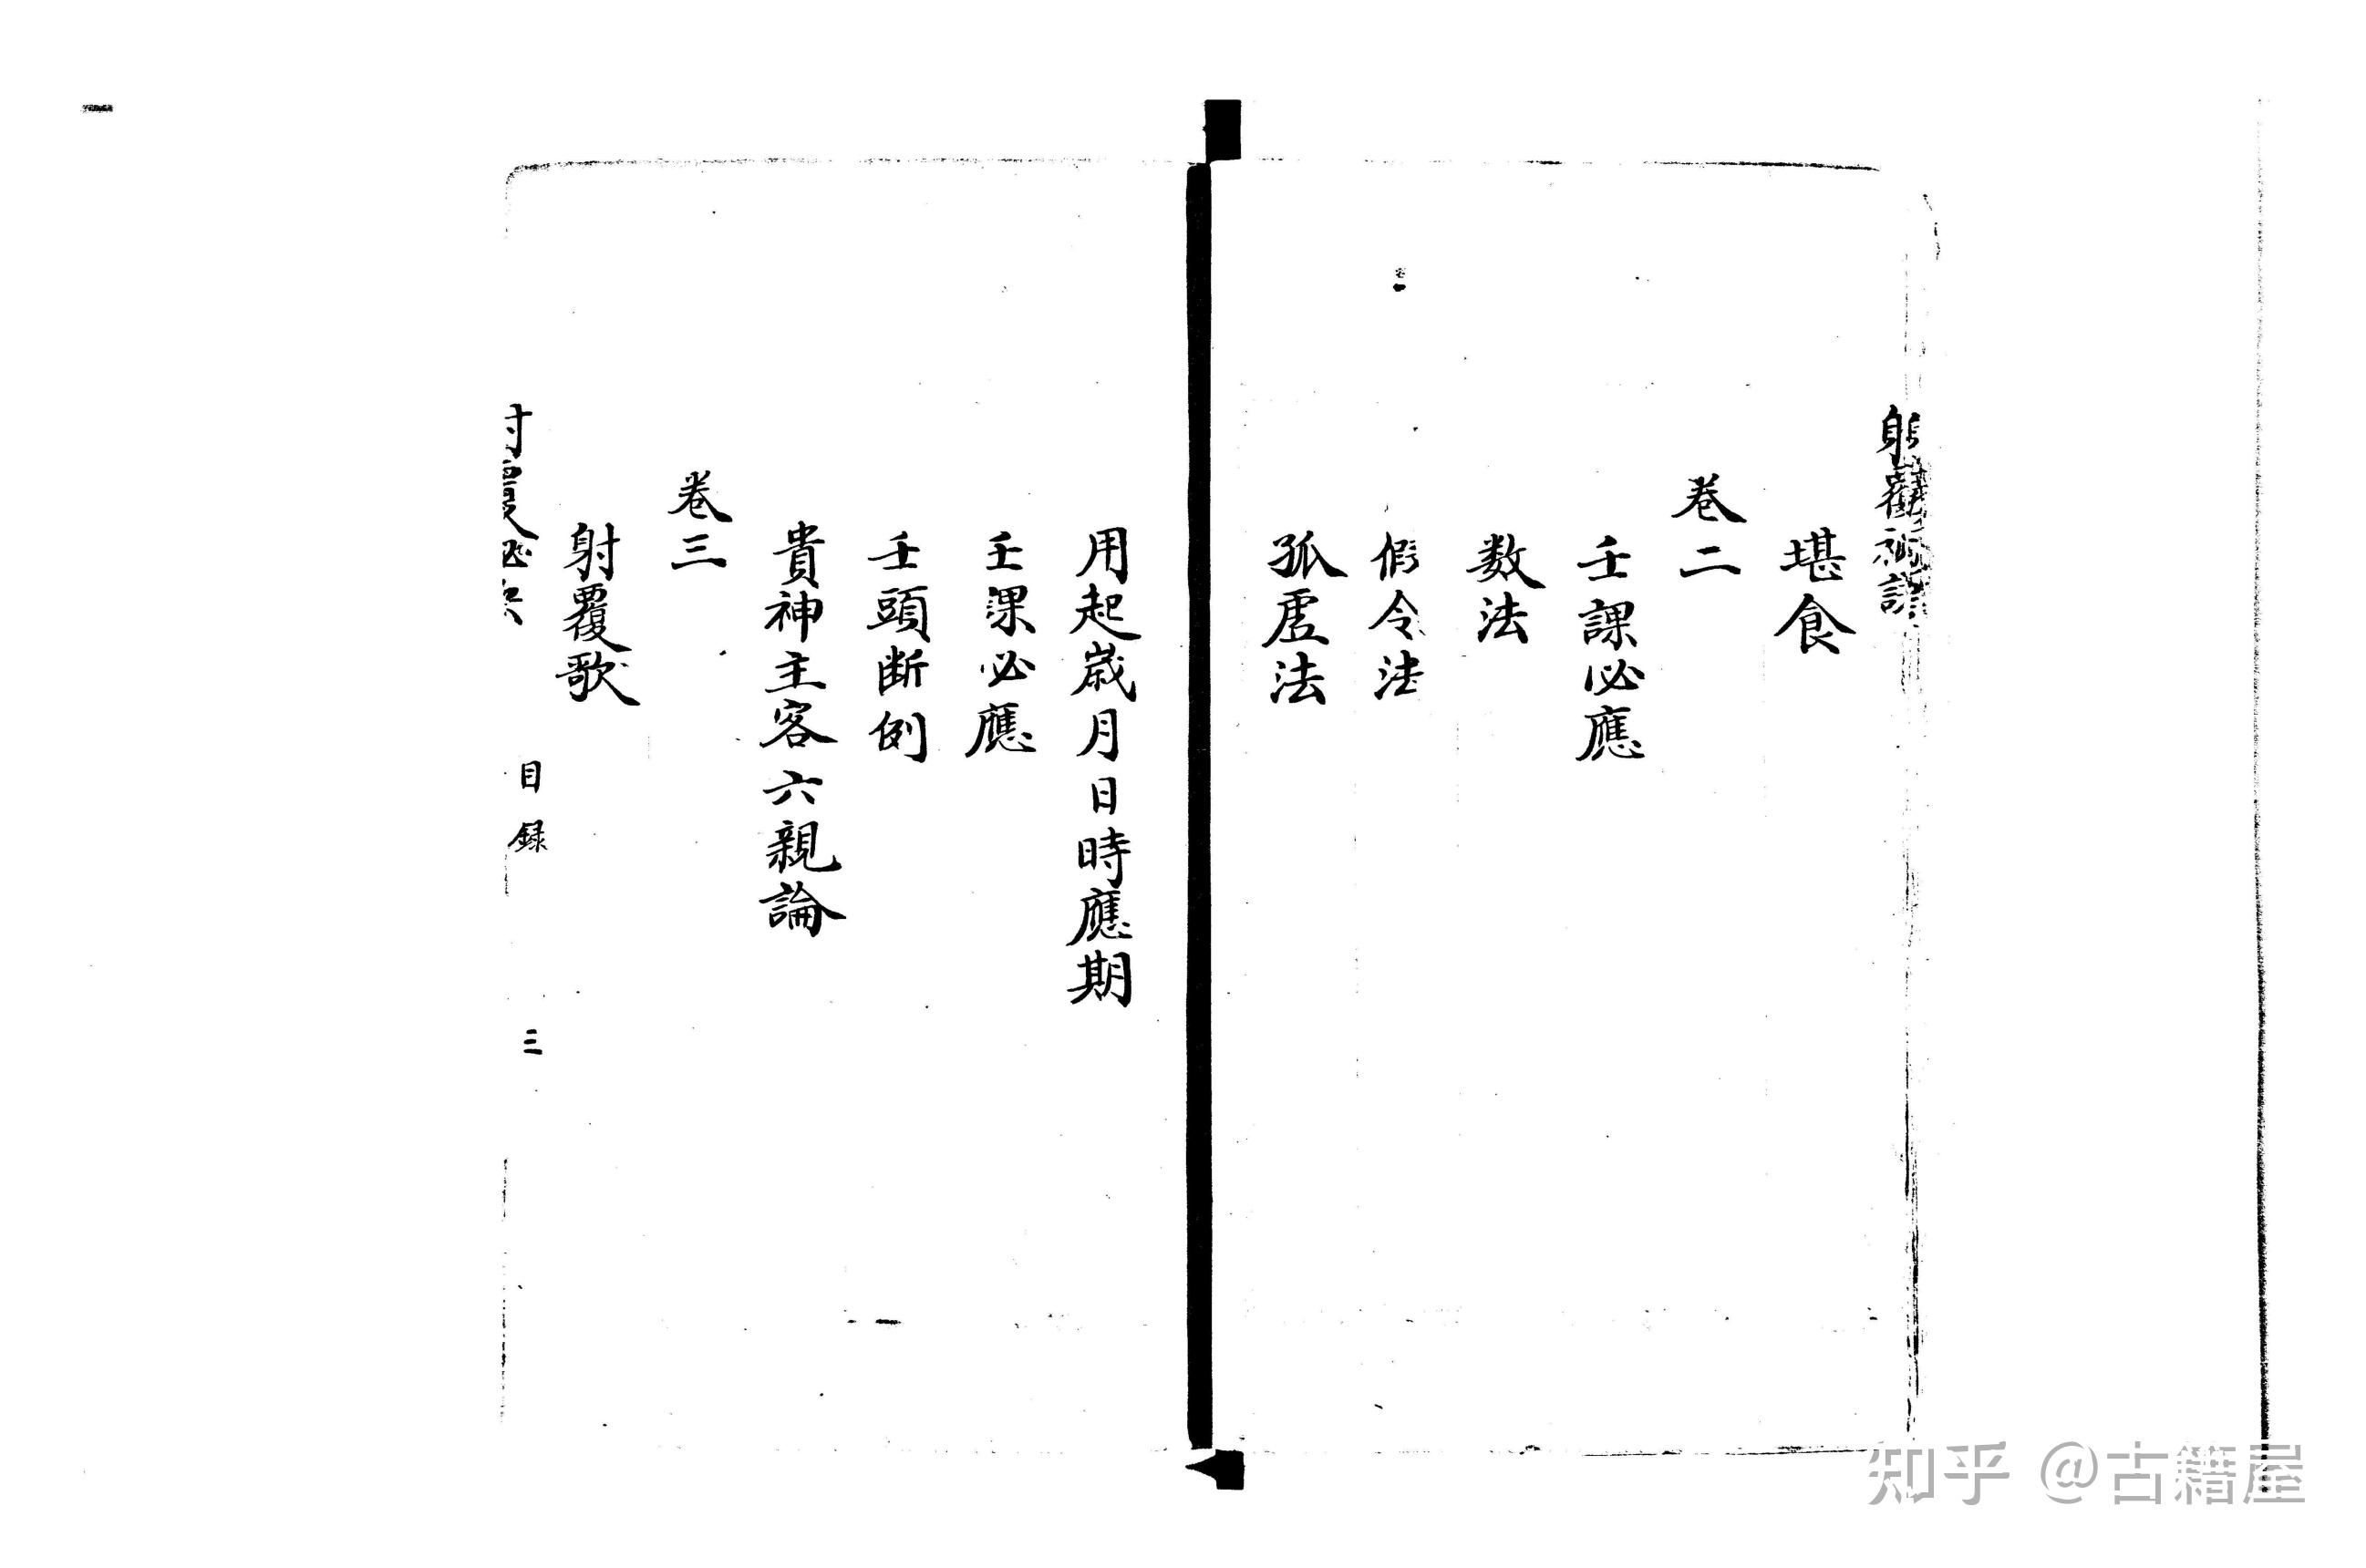 堪食
卷二
壬課必應
数法
假令法
孤虛法
用起歲月日時應期
壬課必應
壬頭断例
貴神主客六親論
卷三
射覆歌
目録
三
知乎 @古籍屋